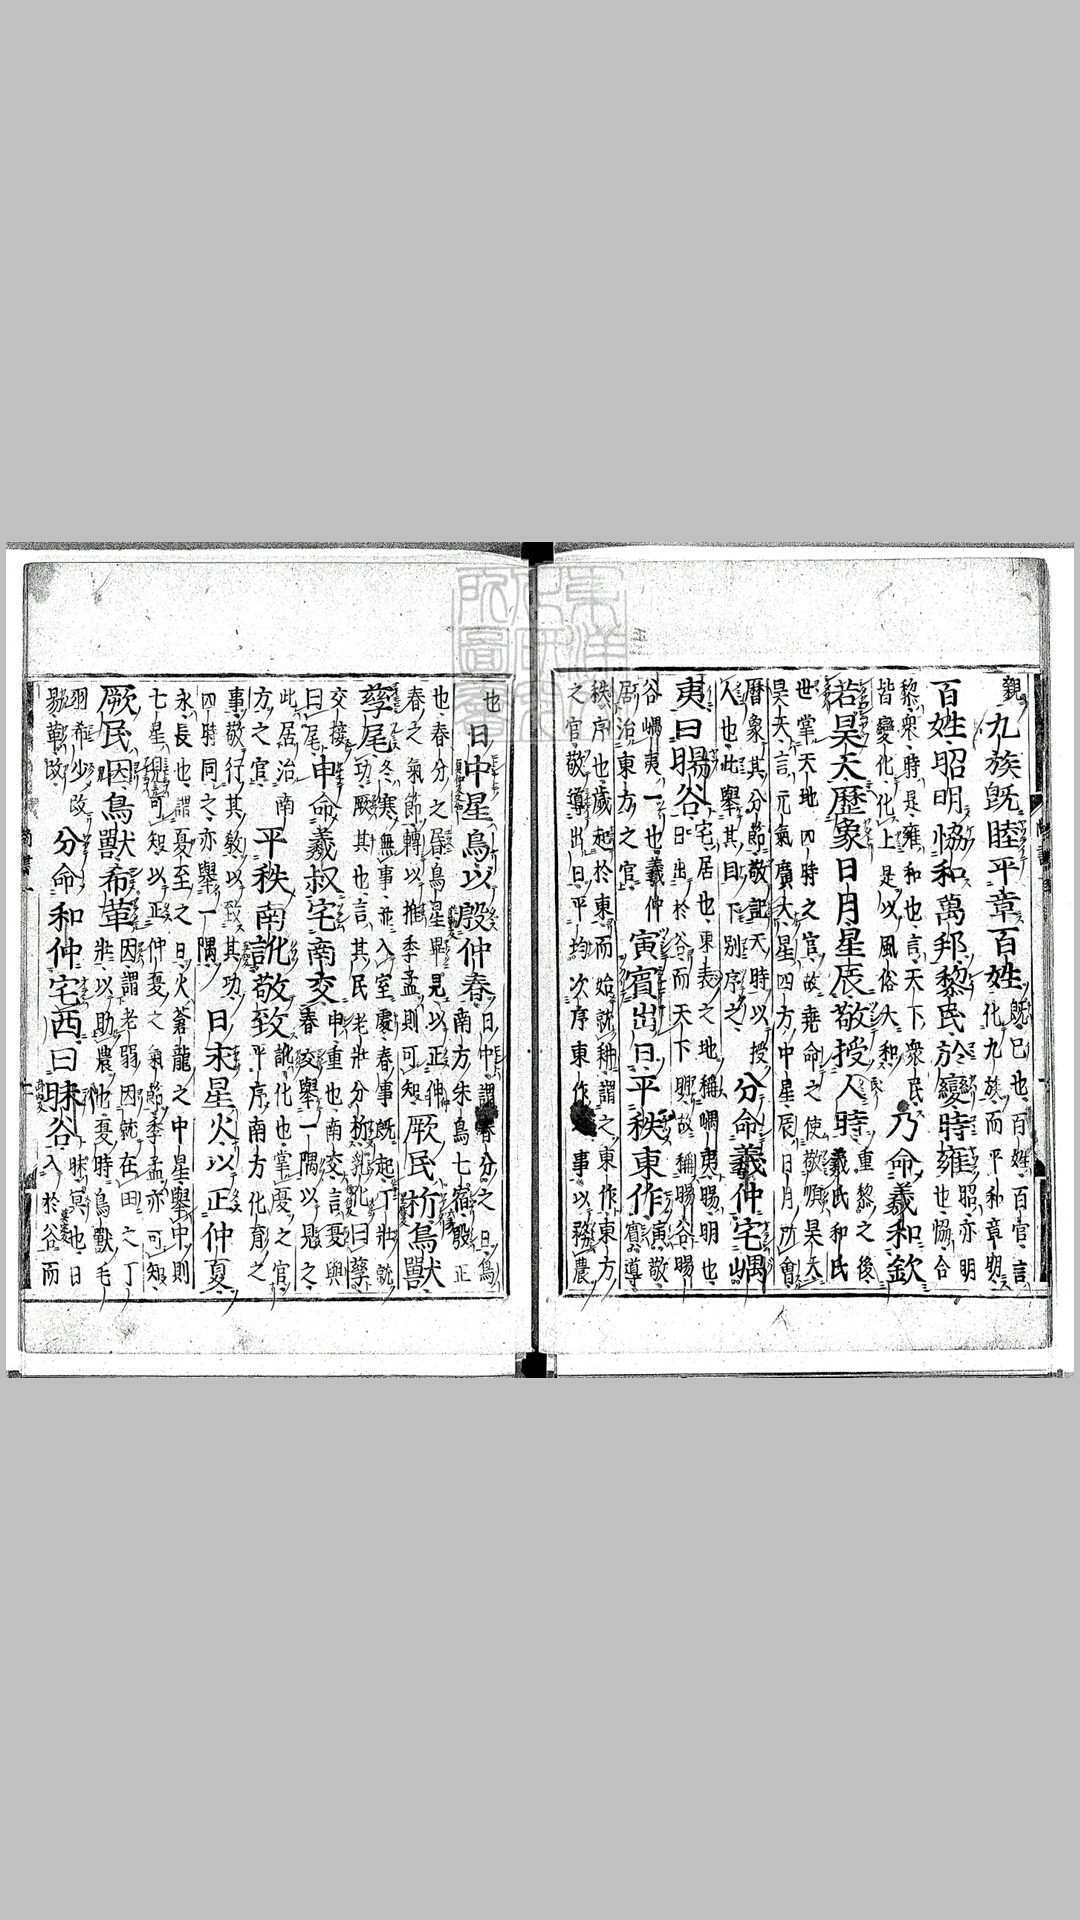 親九族既睦平章百姓既已也百姓百官言
化九族而平和章明
百姓昭明恊和萬邦黎民於變時雍昭亦明
也恊合
黎衆時是雍和也言天下衆民
皆變化化上是以風俗大和
乃命羲和欽
若昊天歷象日月星辰敬授人時重黎之後
羲氏和氏
世掌天地四時之官故堯命之使敬順昊天
昊天言元氣廣大星四方中星辰日月所會
曆象其分節敬記天時以授
人也此舉其目下別序之
分命羲仲宅嵎
夷曰暘谷宅居也東表之地稱嵎夷暘明也
日出於谷而天下故稱暘谷暘
谷嵎夷一也羲仲
居治東方之官
寅賓出日平秩東作寅敬
賓導
秩序也歲起於東而始就耕謂之東作東方
之官敬導出日平均次序東作事以務農
也日中星鳥以殷仲春日中謂春分之日鳥
南方朱鳥七宿殷正
也春分之昏鳥星畢見以正仲
春之氣節轉以推季孟則可知
厥民析鳥獸
孳尾冬寒無事並入室處春事既起丁壯就
功厥其也言其民老壯分析乳化曰孳
交接
曰尾
申命羲叔宅南交申重也南交言夏與
春交舉一隅以見之
此居治南
方之官
平秩南訛敬致訛化也掌夏之官
平序南方化育之
事敬行其教以致其功
四時同之亦舉一隅
日永星火以正仲夏
永長也謂夏至之日火蒼龍之中星舉中則
七星見可知以正仲夏之氣節季孟亦可知
厥民因鳥獸希革因謂老弱因就在田之丁
壯以助農也夏時鳥獸毛
羽希少改
易革改
分命和仲宅西曰昧谷昧冥也日
入於谷而